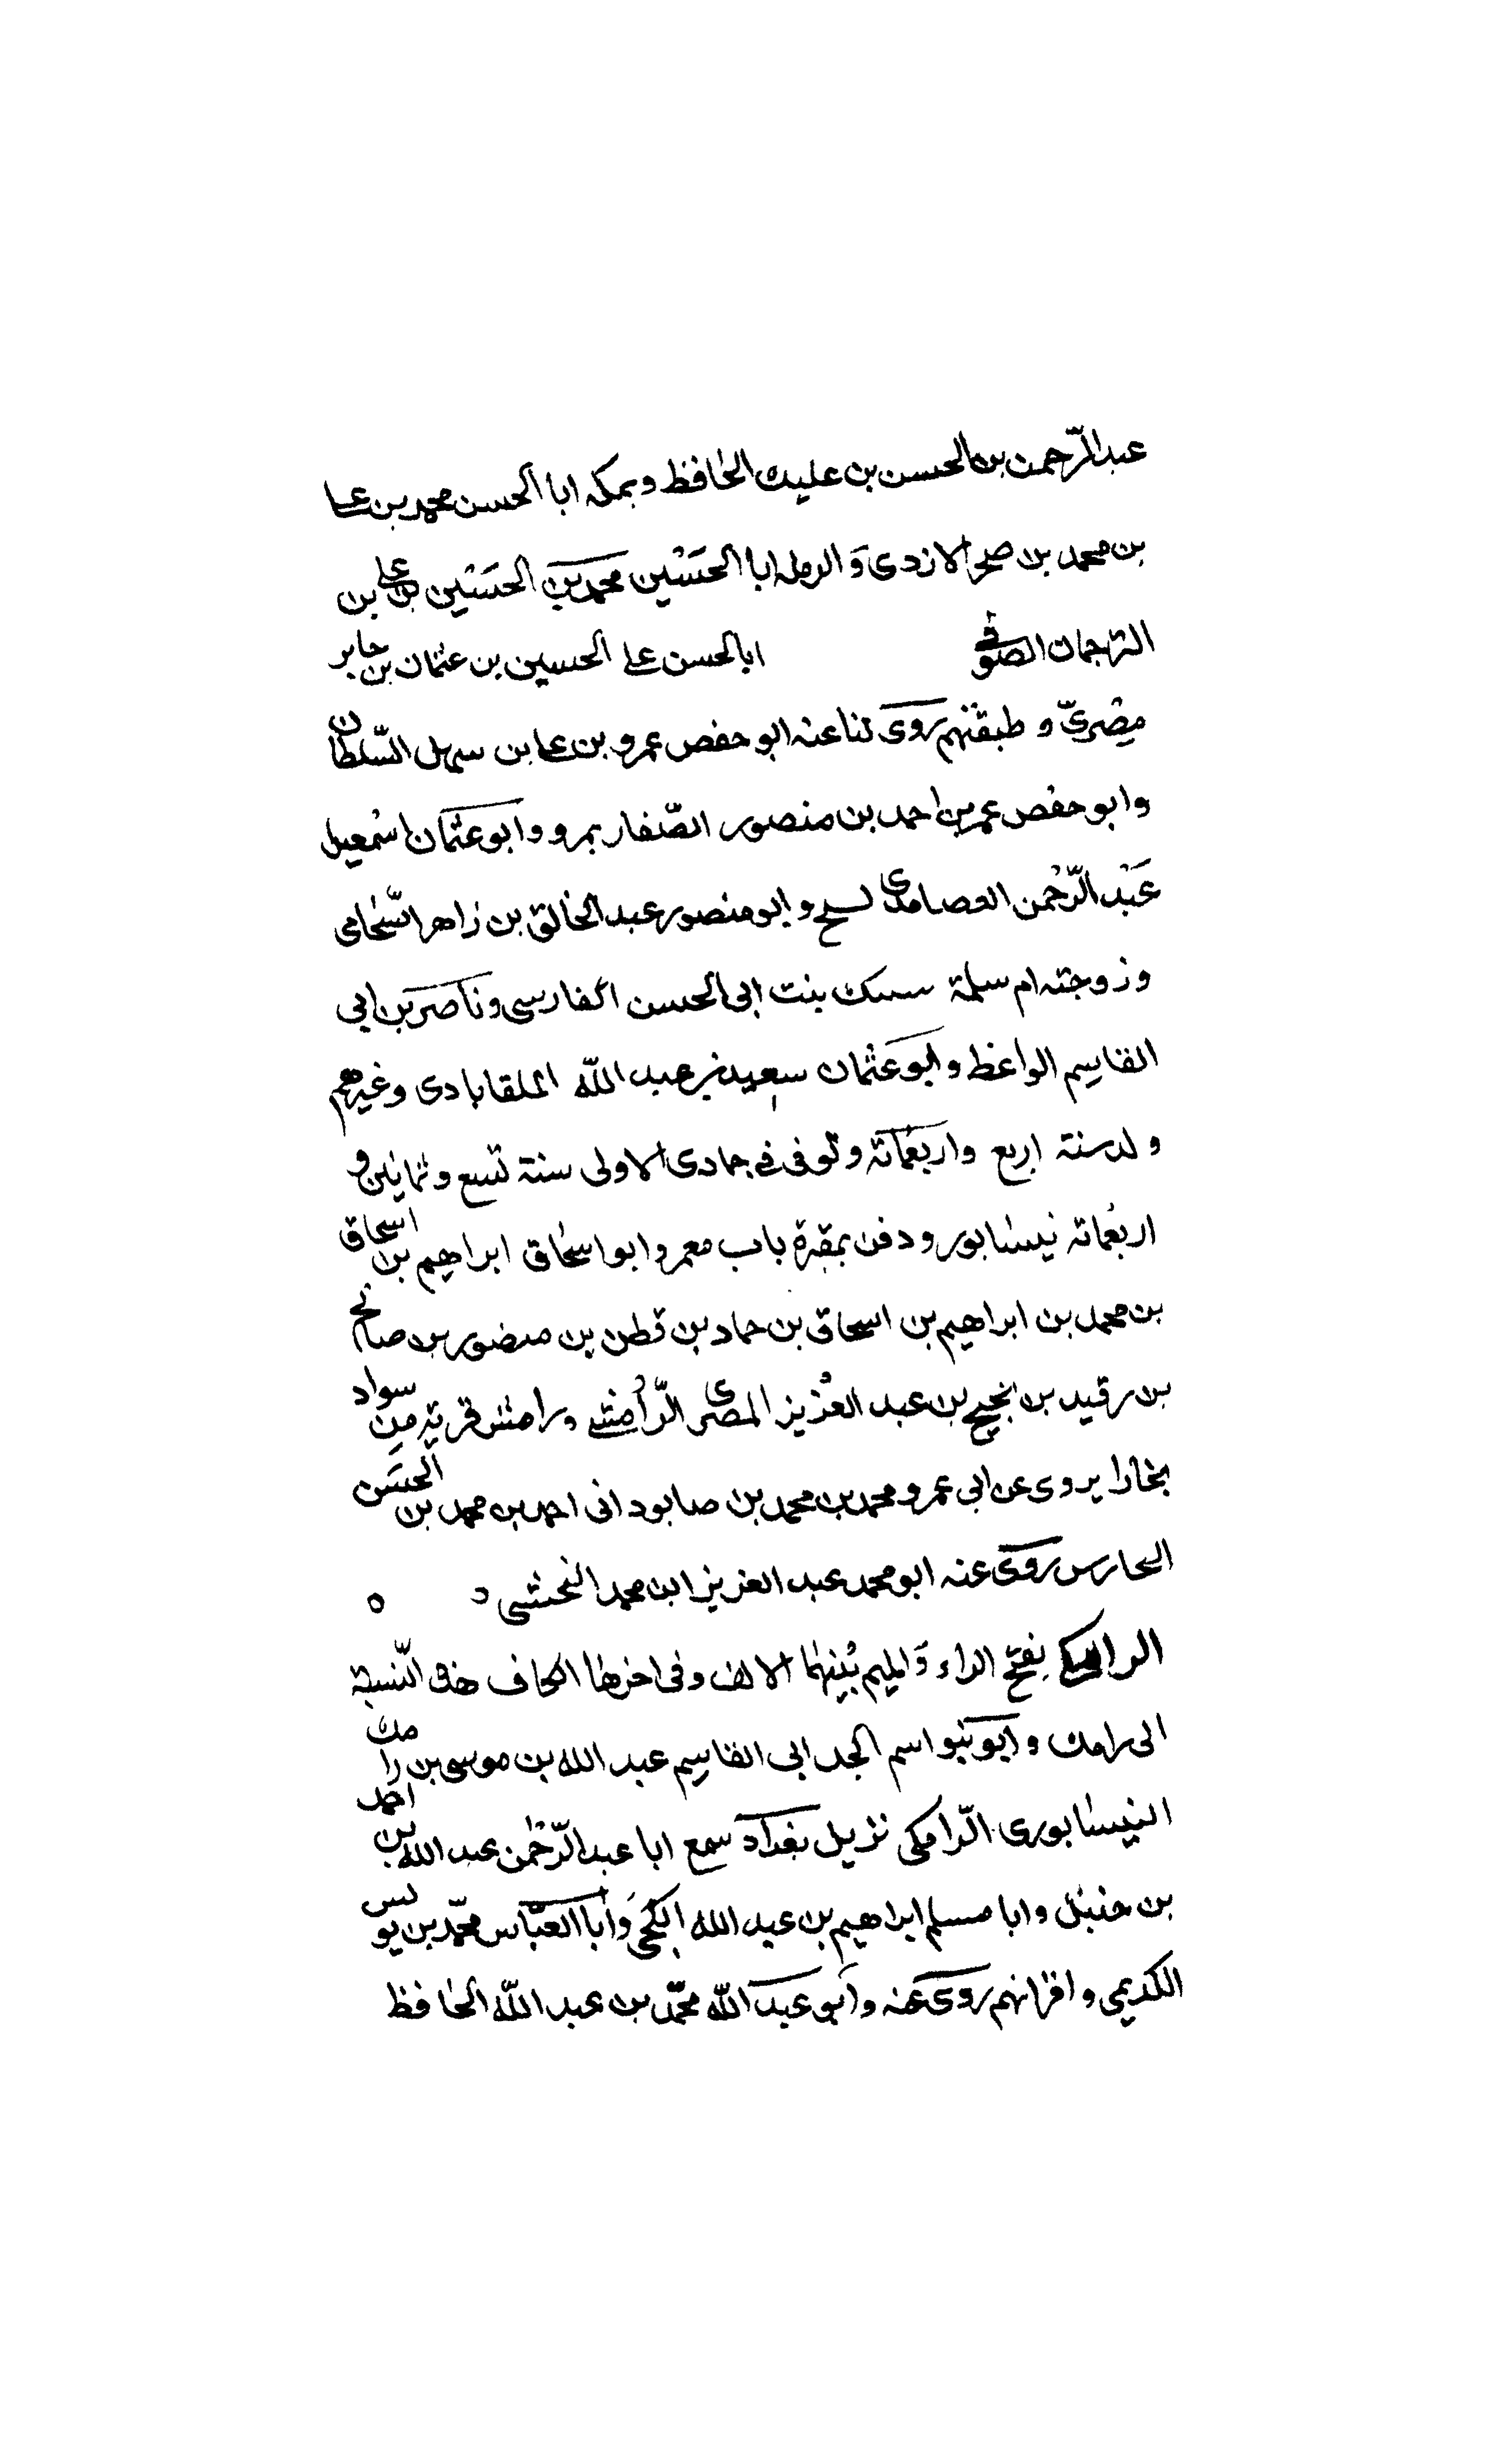 عبد الرّحمن بن الحسن بن عليك الحافظ وبمكه ابا الحسن محمد بن علي
بن محمد بن صخر الازدى وَ الرمله ابا الحسَين محمد بن الحسَين بن علي بن
الترجمان الصوفي ابا الحسن علي الحسين بن عثمان بن جابر
مِصْرىّ و طبقتهم روى لنا عنه ابو حفص عمرو بن علي بن سهل السّلطان
وابو حفص عمر بن احمد بن منصور الصّفار بمرو وابو عثمان اسمعيل
عَبْد الرّحمن العصامدى وابو منصور عبد الخالق بن زاهر الشّحامى
وزوجته ام سلمة بنت ابى الحسن الفارسى وناصر بن ابي
القاسِم الواعَظ وابو عثمان سعيد بن عبد اللّه الملقابادى وغيرهم
ولد سنة اربع واربعمائة وتوفى في جمادى الاولى سنة تسع وثمانين و
اربعمائة نيسابور ودفن بمقبرة باب معمر وابو اسحاق ابراهيم بن اسحاق
بن محمد بن ابراهيم بن اسحاق بن حماد بن قطن بن منصور بن صالح
بن رقيد بن نجيح بن عبد العزيز المصرى الرّامنى ورامش قرية من سواد
بخارا يروى عن ابي عمرو محمد بن محمد بن صابود انى احمد بن محمد بن الحسَن
الحارس روى عنه ابو محمد عبد العزيز ابن محمد النخشبى ٥
الرامكي بفتح الراء وَالميم بينهما الالف وفى اخرها الكاف هذه النّسبة
الى رامك و ابو نبو اسم الجد ابى القاسِم عبد الله بن موسى بن رامك
النيسابورى الرّامكى نزيل بغداد سمع ابا عبد الرّحمن عبد الله بن احمد
بن حنبل وابا مسلم ابراهيم بن عبد الله الكجى وَابا العبّاس محمّد بن يونس
الكديمى واقرانهم روى عنه وابو عبد اللّه محمّد بن عبد اللّه الحافظ